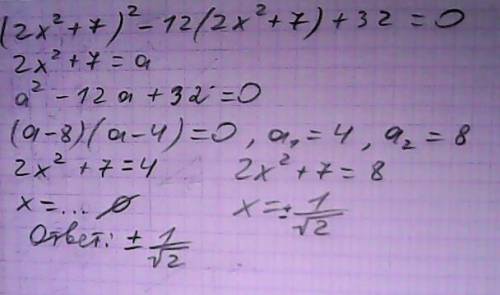 (2x²+7)² - 12(2x²+7) + 32 = 0
2x²+7 = a
a² - 12a + 32 = 0
(a-8)(a-4) = 0, a₁ = 4, a₂ = 8
2x²+7 = 4    2x²+7 = 8
x = ... ∅    x = ± 1/√2
Ответ: ± 1/√2